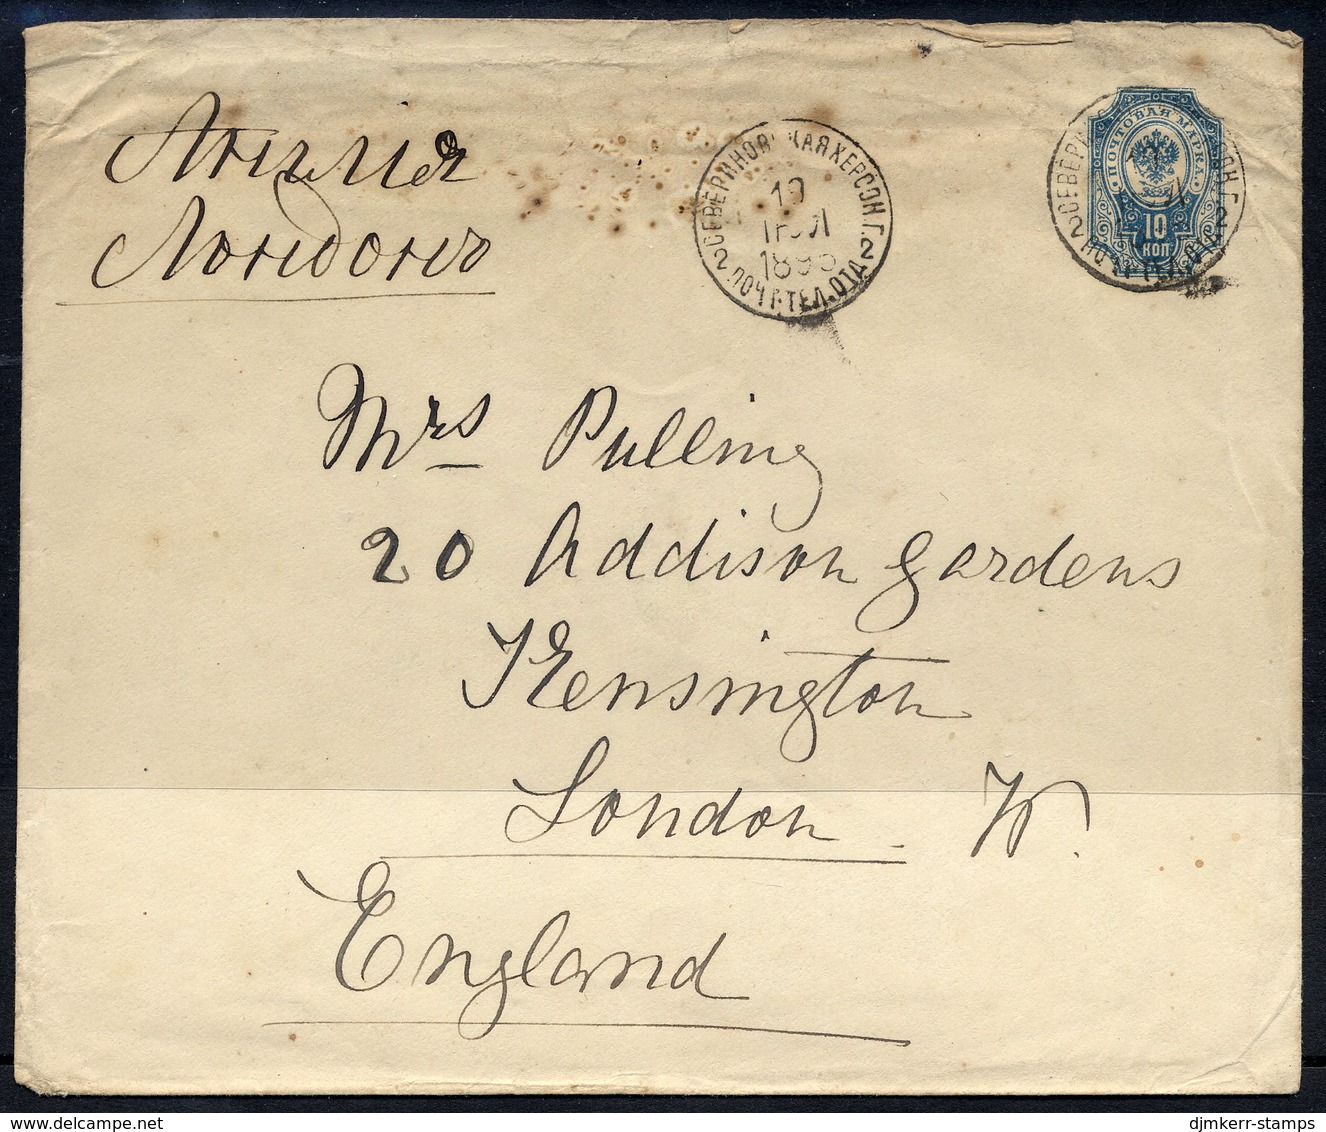 Англия
Лондонъ
СЕВЕРИНОВСКАЯ ХЕРСОН.Г.
ІЮЛ
ПОЧТ.ТЕЛ.ОТД.
2 2
ПОЧТОВАЯ МАРКА
10
КОП
Mrs Pulling
20 Addison Gardens
Kensington
London W.
England
delcampe.net
djmkerr-stamps